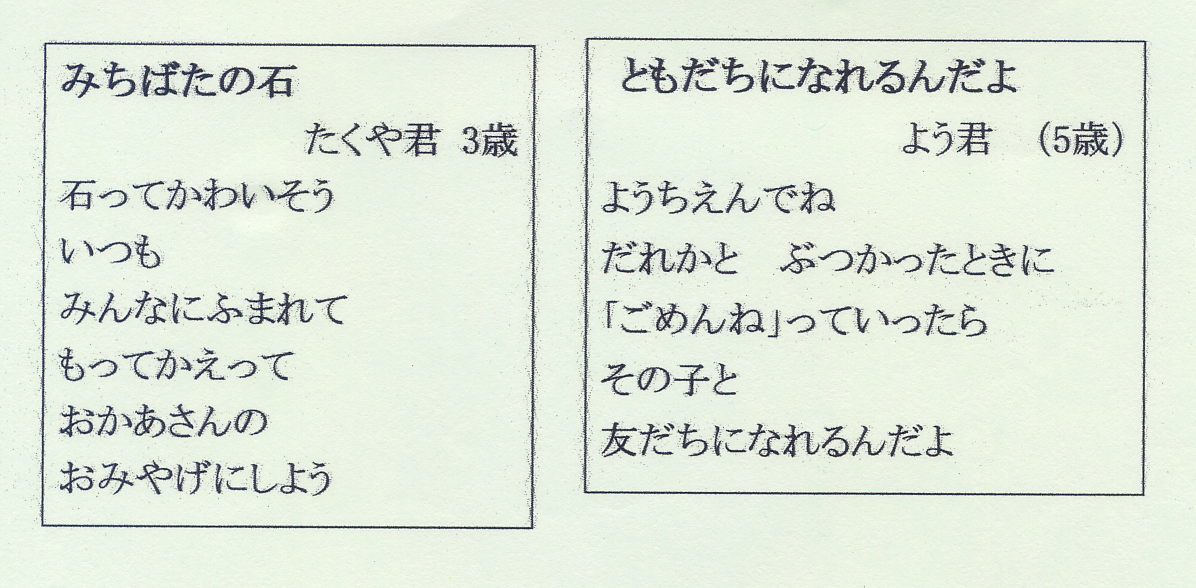 みちばたの石
たくや君 3歳
石ってかわいそう
いつも
みんなにふまれて
もってかえって
おかあさんの
おみやげにしよう
ともだちになれるんだよ
よう君　（5歳）
ようちえんでね
だれかと　ぶつかったときに
「ごめんね」っていったら
その子と
友だちになれるんだよ